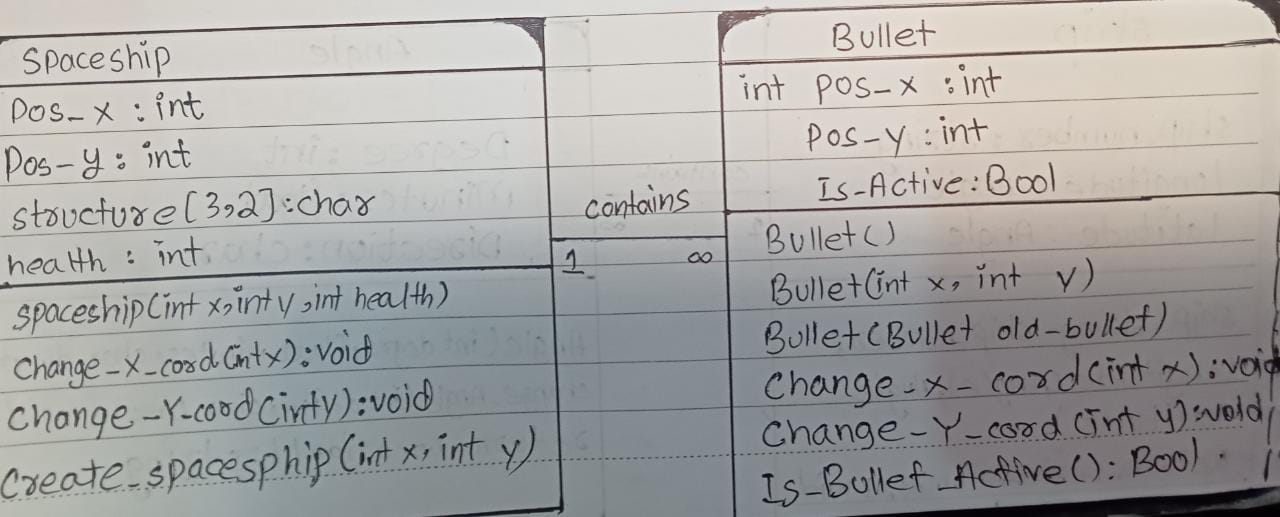 Spaceship
Pos-x : int
Pos-y : int
structure[3,2]:char
health : int
spaceship(int x,int y,int health)
Change-X-cord(int x):void
Change-Y-cord(int y):void
Create_spacesphip(int x, int y)
contains
1 ∞
Bullet
int pos-x : int
Pos-y : int
Is-Active:Bool
Bullet()
Bullet(int x, int y)
Bullet(Bullet old-bullet)
Change-x-cord(int x):void
Change-Y-cord(int y):void
Is-Bullet_Active():Bool.